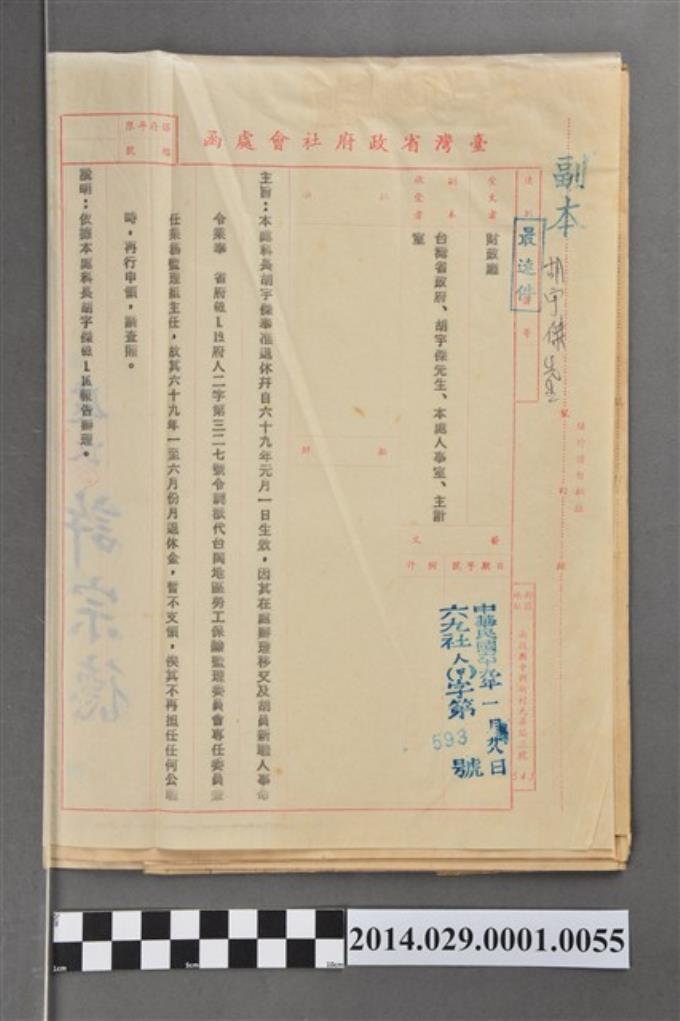 副本
胡宇傑先生
臺灣省政府社會處函
最速件
受文者
財政廳
副本
收受者
台灣省政府、胡宇傑先生、本處人事室、主計
室
發文
日期
字號
附件
中華民國六十九年一月 日
六九社人(甲)字第593號
主旨：本處科長胡宇傑奉准退休幷自六十九年元月一日生效，因其在處辦理移交及胡員新職人事命
令業奉 省府 府人二字第三二七號令調派代台閩地區勞工保險監理委員會專任委員兼
任業務監理組主任，故其六十九年一至六月份月退休金，暫不支領，俟其不再担任任何公職
時，再行申領，請查照。
說明：依據本處科長胡宇傑 報告辦理。
許宗德
2014.029.0001.0055
1cm
5cm
10cm